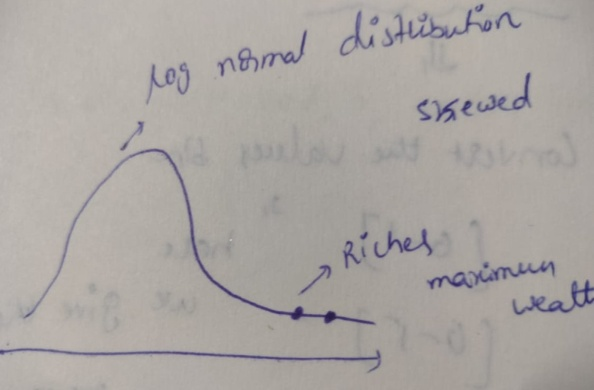 log normal distribution
skewed
Riches
maximum
wealt